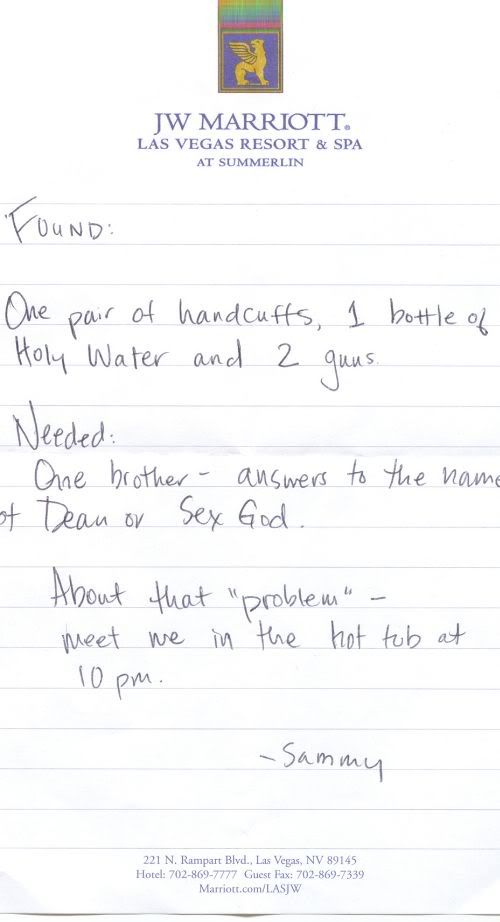 JW MARRIOTT®
LAS VEGAS RESORT & SPA
AT SUMMERLIN
FOUND:
One pair of handcuffs, 1 bottle of
Holy Water and 2 guns.
Needed:
One brother - answers to the name
of Dean or Sex God.
About that "problem" -
meet me in the hot tub at
10 pm.
-Sammy
221 N. Rampart Blvd., Las Vegas, NV 89145
Hotel: 702-869-7777 Guest Fax: 702-869-7339
Marriott.com/LASJW